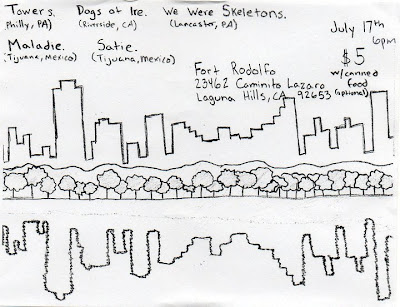 Towers. Dogs of Ire. We Were Skeletons.
Philly, PA) (Riverside, CA) (Lancaster, PA)
July 17th
6pm
Maladie. Satie.
(Tijuana, Mexico) (Tijuana, mexico)
$5
w/canned
food
(optional)
Fort Rodolfo
23462 Caminito Lazaro
Laguna Hills, CA 92653